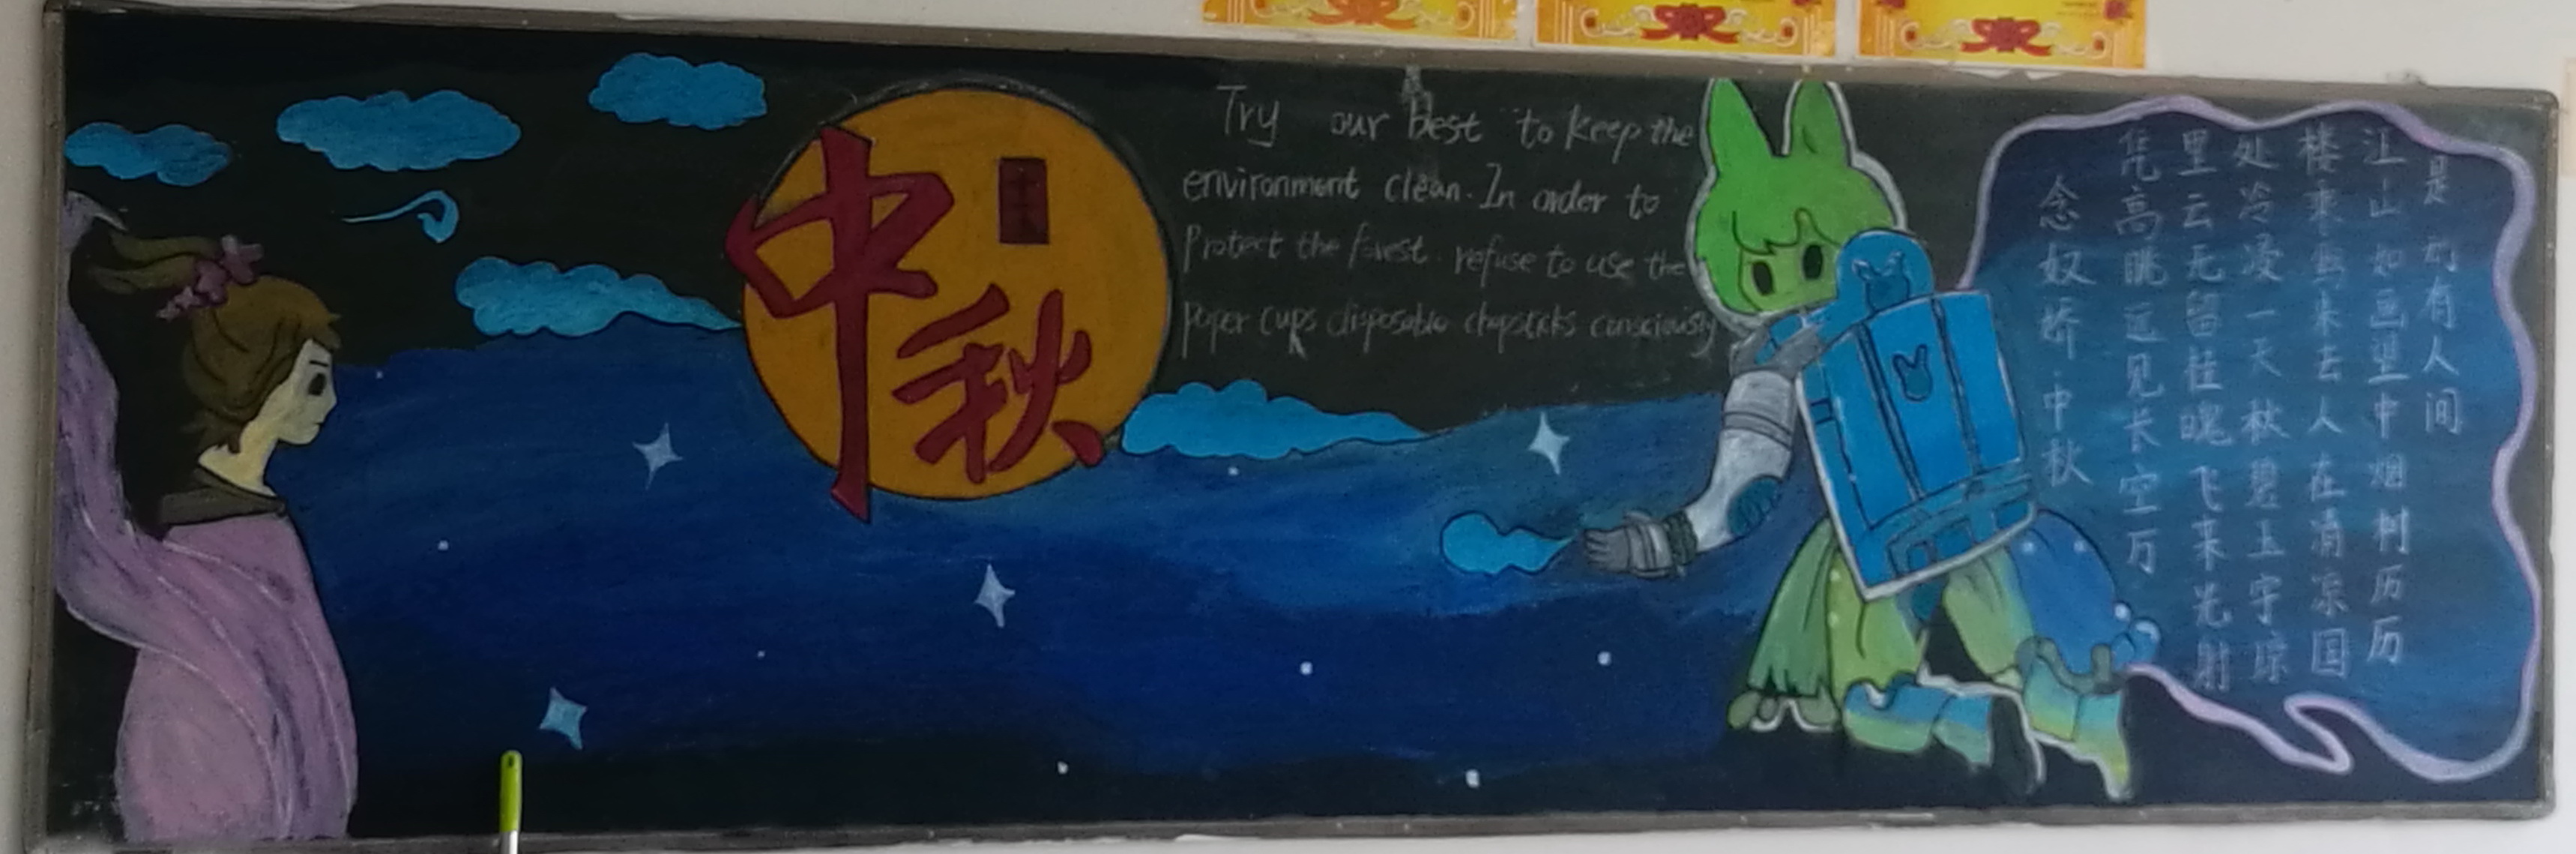 中秋
Try our best to keep the
environment clean. In order to
Protect the forest. refuse to use the
paper cups disposable chopsticks consciously
念奴娇·中秋
凭高眺远见长空万
里云无留桂魄飞来光射
处冷浸一天秋碧玉宇琼
楼乘鸾来去人在清凉国
江山如画望中烟树历历
是有人间